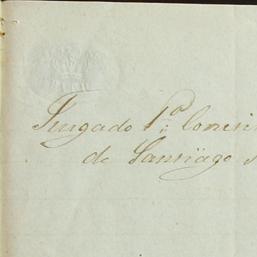 Jusgado 1º Comisi
de Santiago